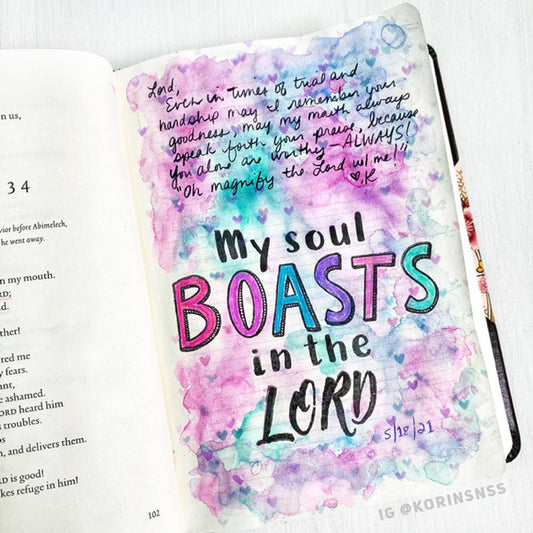 n us,
34
vior before Abimelech,
he went away.
n my mouth.
RD;
d.
ther!
red me
y fears.
ant,
e ashamed.
ORD heard him
s troubles.
ps
m, and delivers them.
RD is good!
kes refuge in him!
102
Lord,
Even in times of trial and
hardship may I remember your
goodness, may my mouth always
speak forth your praise, because
you alone are worthy - ALWAYS!
"Oh magnify the Lord w/ me!"
♡, K
My soul
BOASTS
in the
LORD
5/18/21
IG @KORINSNSS